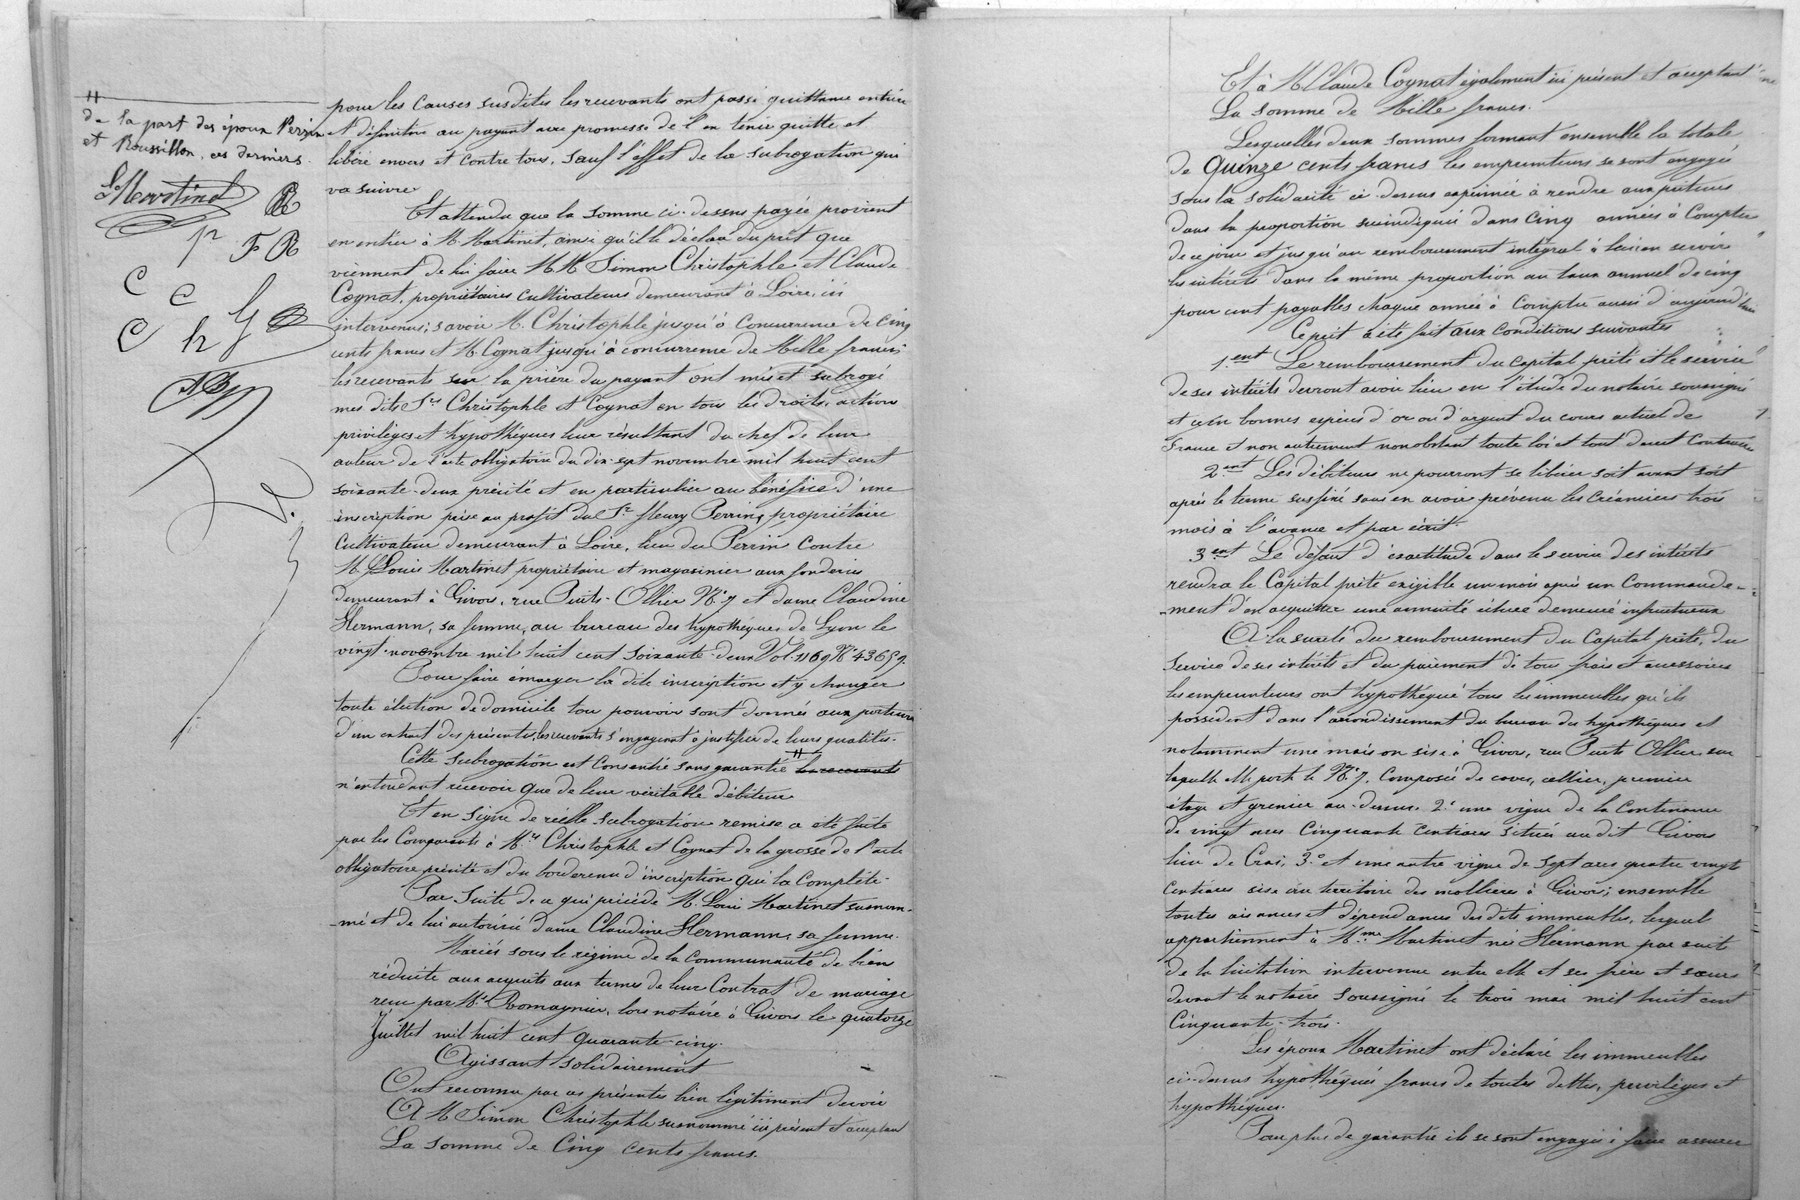 #
de la part des époux Perrin
et Roussillon, ces derniers.
L. Martinet
P F R
C C G
C h
pour les causes susdites les recevants ont passé quittance entière
et définitive au payant avec promesse de l'en tenir quitte et
libéré envers et contre tous, sauf l'effet de la subrogation qui
va suivre
Et attendu que la somme ci-dessus payée provient
en entier à M. Martinet, ainsi qu'il le déclare du prêt que
viennent de lui faire MM Simon Christophle et Claude
Coynat, propriétaires cultivateurs demeurant à Loire, ici
intervenus; savoir M. Christophle jusqu'à concurrence de cinq
cents francs et M. Coynat jusqu'à concurrence de Mille francs
les recevants sur la prière du payant ont mis et subrogé
mes dits Srs Christophle et Coynat en tous les droits, actions
privilèges et hypothèques leur résultant du chef de leur
auteur de l'acte obligatoire du dix-sept novembre mil huit cent
soixante-deux précité et en particulier au bénéfice d'une
inscription prise au profit du Sr fleury Perrin, propriétaire
cultivateur demeurant à Loire, lieu du Perrin contre
M. Louis Martinet propriétaire et magasinier aux fonderies
demeurant à Givors, rue Puits-Ollier No 7 et dame Claudine
Hermann, sa femme, au bureau des hypothèques de Lyon le
vingt novembre mil huit cent soixante-deux Vol. 1169 No 43659.
Pour faire émarger la dite inscription et y changer
toute élection de domicile tout pouvoir sont donnés aux porteurs
d'un extrait des présentes, les recevants s'engageant à justifier de leurs qualités.
Cette subrogation est consentie sans garantie # les recevants
n'entendant recevoir que de leur véritable débiteur
Et en signe de réelle subrogation remise a été faite
par les comparants à Mrs Christophle et Coynat de la grosse de l'acte
obligatoire précité et du bordereau d'inscription qui la complète.
Par suite de ce qui précède M. Louis Martinet susnom-
mé et de lui autorisée dame Claudine Hermann, sa femme.
Mariés sous le régime de la communauté de biens
réduite aux acquêts aux termes de leur Contrat de mariage
reçu par Me Romagnier, lors notaire à Givors le quatorze
Juillet mil huit cent quarante-cinq.
Agissant solidairement
Ont reconnu par ces présentes bien légitimement devoir
A M Simon Christophle susnommé ici présent et acceptant
La somme de Cinq cents francs.
Et à M Claude Coynat également ici présent et acceptant
La somme de Mille francs.
Lesquelles deux sommes formant ensemble la totale
de Quinze cents francs les emprunteurs se sont engagés
sous la solidarité ci-dessus exprimée à rendre aux prêteurs
dans la proportion susindiquée dans Cinq années à compter
de ce jour et jusqu'au remboursement intégral à leur en servir
les intérêts dans la même proportion au taux annuel de cinq
pour cent payables chaque année à compter aussi d'aujourd'hui
Ce prêt a été fait aux conditions suivantes
1.ent Le remboursement du capital prêté et le service
de ses intérêts devront avoir lieu en l'étude du notaire soussigné
et en bonnes espèces d'or ou d'argent du cours actuel de
France et non autrement nonobstant toute loi et tout décret contraire
2.ent Les débiteurs ne pourront se libérer soit avant soit
après le terme susfixé sans en avoir prévenu les créanciers trois
mois à l'avance et par écrit.
3.ent Le défaut d'exactitude dans le service des intérêts
rendra le Capital prêté exigible un mois après un commande-
ment d'en acquitter une annuité échue demeuré infructueux
A la sureté du remboursement du Capital prêté, du
service de ses intérêts et du paiement de tous frais et accessoires
les emprunteurs ont hypothéqué tous les immeubles qu'ils
possèdent dans l'arrondissement du bureau des hypothèques et
notamment une maison sise à Givors, rue Puits Ollier sur
laquelle elle porte le No 7, composée de caves, cellier, premier
étage et grenier au-dessus. 2.o une vigne de la contenance
de vingt ares cinquante centiares située au dit Givors
lieu de Cras, 3.o et une autre vigne de sept ares quatre vingts
centiares sise au territoire des mollières à Givors; ensemble
toutes aisances et dépendances des dits immeubles, lesquels
appartiennent à Mme Martinet née Hermann par suite
de la licitation intervenue entre elle et ses père et sœurs
devant le notaire soussigné le trois mai mil huit cent
Cinquante-trois.
Les époux Martinet ont déclaré les immeubles
ci-dessus hypothéqués francs de toutes dettes, privilèges et
hypothèques.
Pour plus de garantie ils se sont engagés à faire assurer